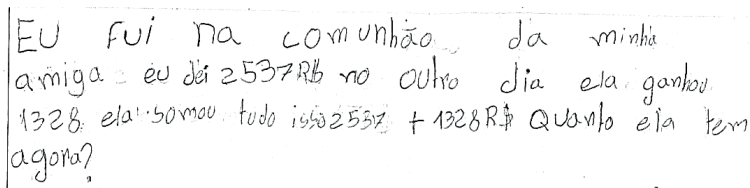 EU fui na comunhão da minha
amiga eu dei 2537R$ no outro dia ela ganhou
1328 ela somou tudo isso 2537 + 1328R$ Quanto ela tem
agora?